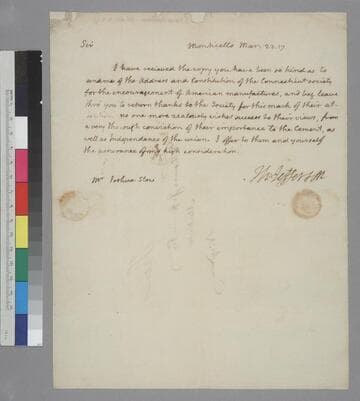 Sir
Monticello Mar. 22. 17
I have recieved the copy you have been so kind as to
send me of the Address and Constitution of the Connecticut society
for the encouragement of American manufactures, and beg leave
thro' you to return thanks to the Society for this mark of their at-
tention. no one more zealously wishes success to their views, from
a very thorough conviction of their importance to the Cement, as
well as Independance of the union. I offer to them and yourself
the assurance of my high consideration.
Th: Jefferson
Mr Joshua